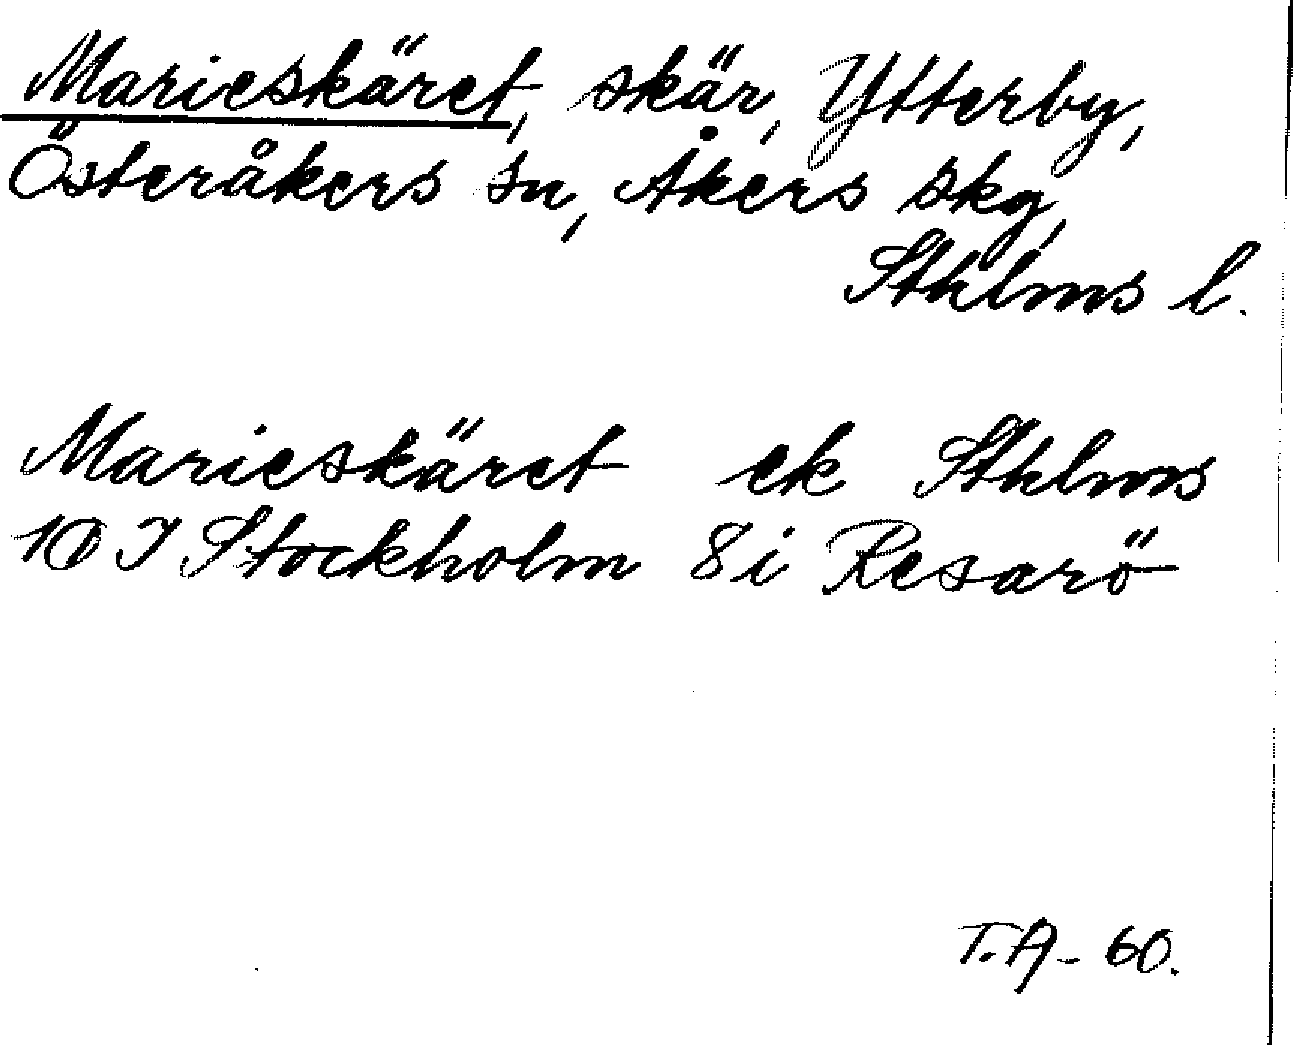 Marieskäret, skär, Ytterby,
Österåkers sn, Åkers skg,
Sthlms l.
Marieskäret ek Sthlms
10 I Stockholm 8 i Resarö
T.A - 60.